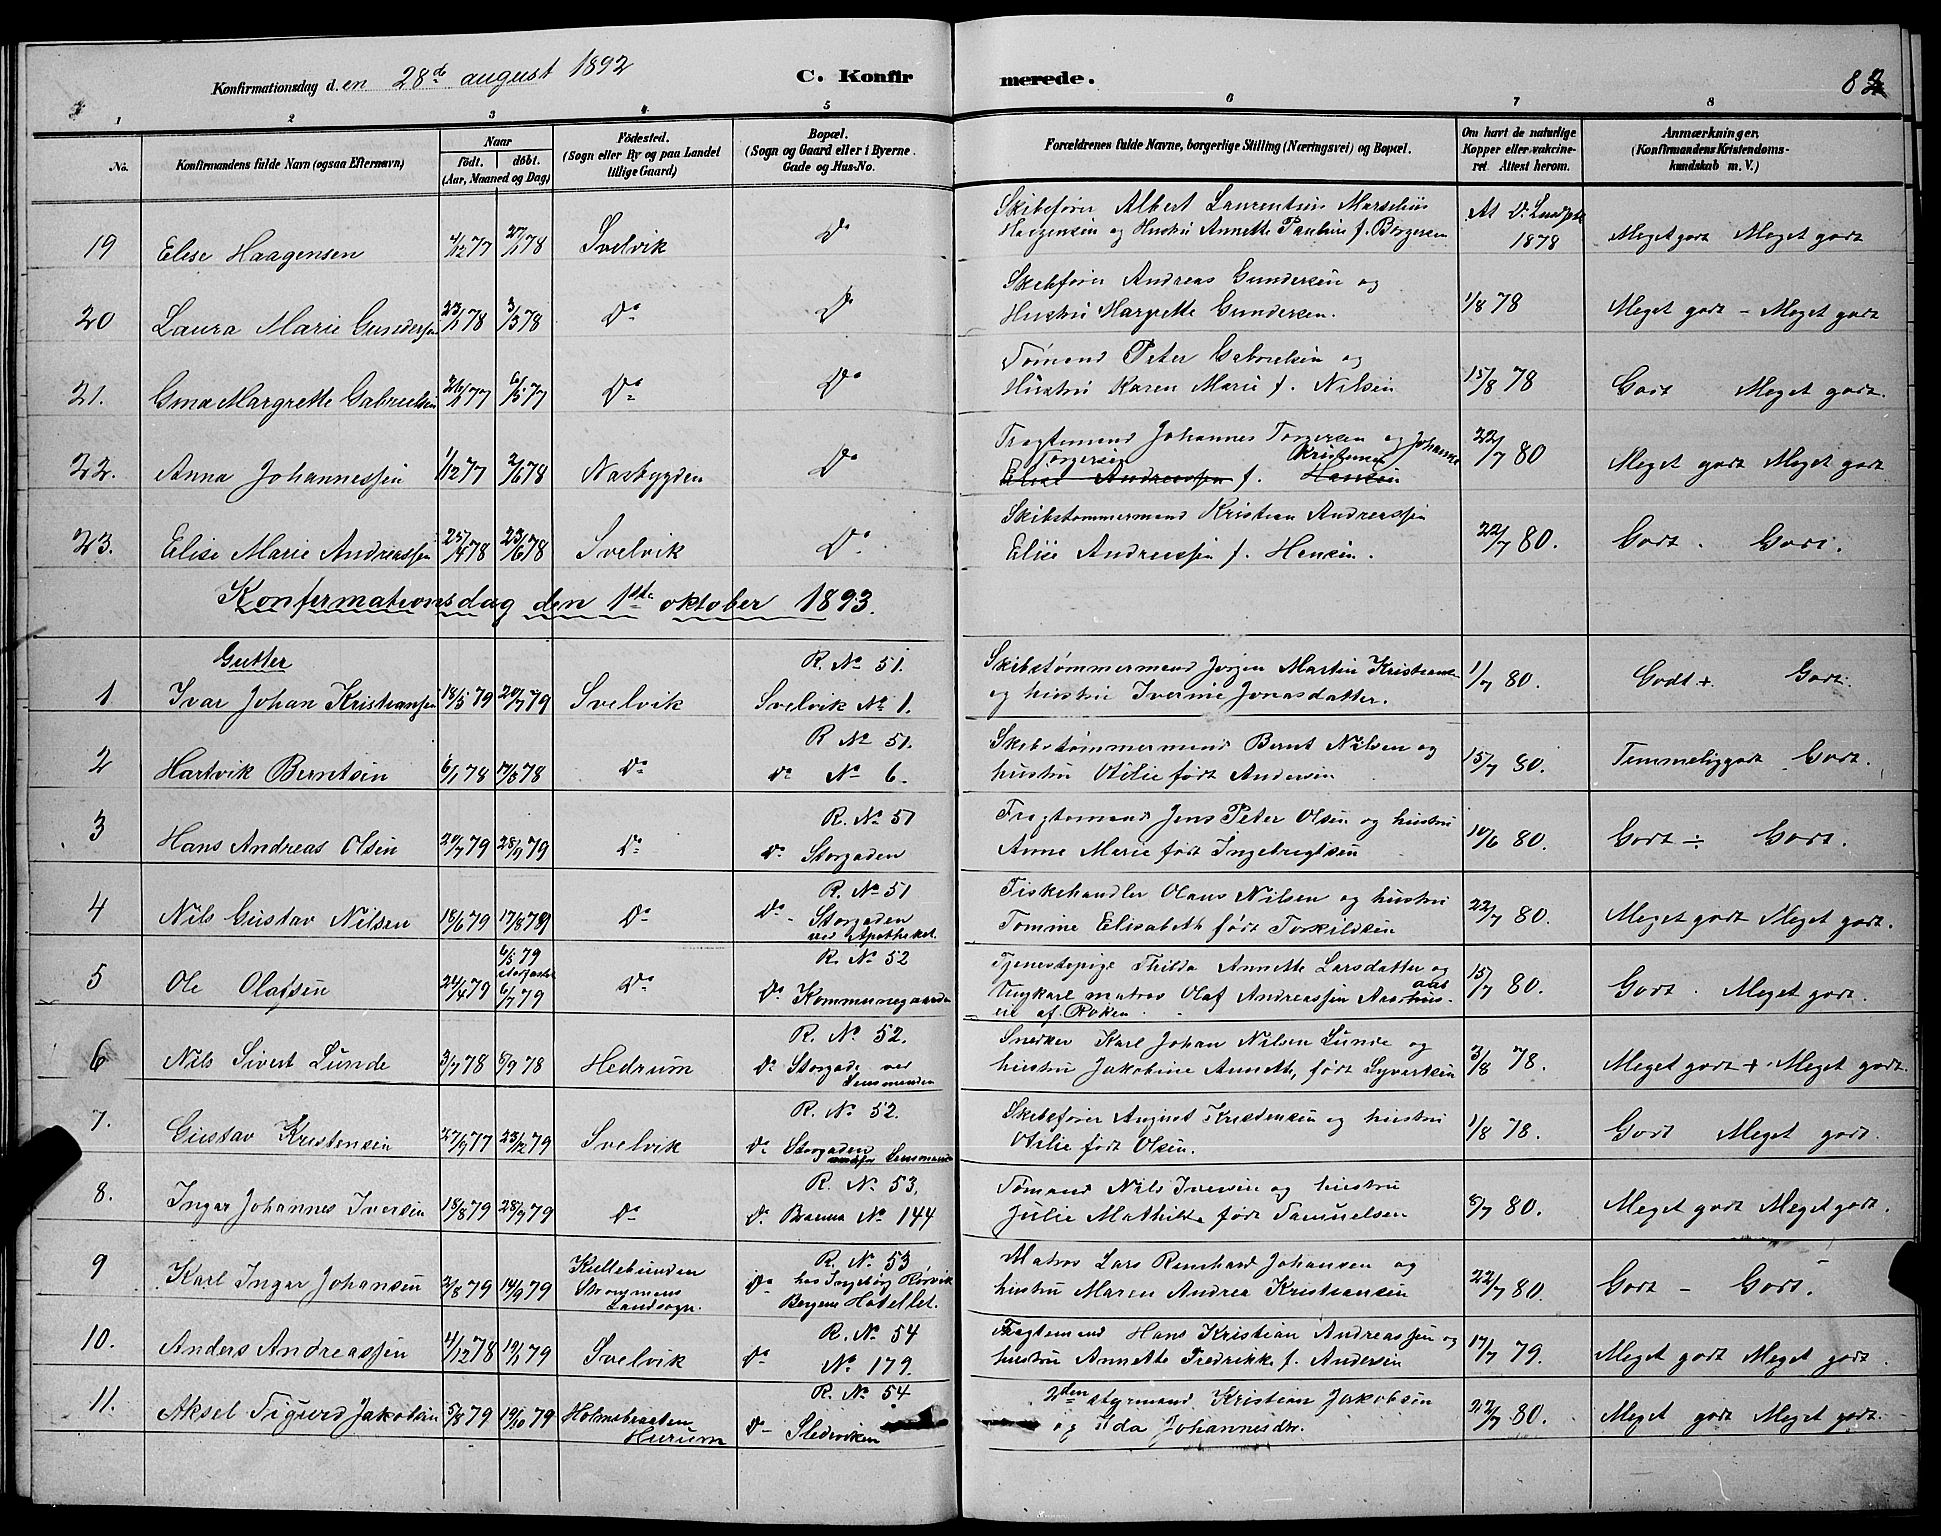 Konfirmationsdag d. en 28de august 1892
C. Konfirmerede.
82
1 2 3 4 5 6 7 8
No.
Konfirmandens fulde Navn (ogsaa Efternavn)
Naar
født. døbt.
(Aar, Maaned og Dag)
Fødested.
(Sogn eller By og paa Landet
tillige Gaard)
Bopæl.
(Sogn og Gaard eller i Byerne
Gade og Hus-No.
Forældrenes fulde Navne, borgerlige Stilling (Næringsvei) og Bopæl.
Om havt de naturlige
Kopper eller vakcine-
ret Attest herom.
Anmærkninger.
(Konfirmandens Kristendoms-
kundskab m. V.)
Skibsfører Albert Laurentius Marselius
19 Elise Haagensen 4/12 77 27/1 78 Svelvik Do Haagensen og Hustru Annette Pauline f. Børgersen 1878 Meget godt Meget godt
Skibsfører Andreas Gundersen og
20 Laura Marie Gundersen 23/1 78 3/3 78 Do Do Hustru Margrette Gundersen. 1/8 78 Meget godt - Meget godt
Tømand Peter Gabrielsen og
21. Gina Margrette Gabrielsen 77 6/5 77 Do Do Hustru Karen Marie f. Nilsen 15/8 78 Godt Meget godt.
Fragtemand Johannes Torgersen og Johanne
Torgersen Kristensen
22. Anna Johannessen 1/12 77 2/6 78 Næsbygden Do Elise Andreassen f. Hansen 22/7 80 Meget godt Meget godt
Skibstømmermand Kristian Andreassen
23. Elise Marie Andreassen 25/4 78 23/6 78 Svelvik Do Elise Andreassen f. Hansen. 22/7 80. Godt. Godt.
Konfirmationsdag den 1ste oktober 1893.
Gutter R. No 51. Skibstømmermand Jørgen Martin Kristiansen
1 Ivar Johan Kristiansen 18/5 79 20/7 79 Svelvik Svelvik No 1. og hustru Iverine Jonasdatter. 1/7 80. Godt + Godt.
R No 51. Skibstømmermand Bernt Nilsen og
2 Hartvik Berntsen 6/1 78 17/3 78 Do Do No 6. hustru Otilie født Andersen 15/7 80. Temmelig godt. Godt.
R. No 51 Fragtemand Jens Peter Olsen og hustru
3 Hans Andreas Olsen 20/7 79 28/9 79 Do Do Storgaden Anne Marie født Ingebregtsen 10/6 80. Godt ÷ Godt.
R. No 51 Fiskehandler Olaus Nilsen og hustru
4 Nils Gustav Nilsen 18/6 79 17/8 79 Do Do Storgaden Tomine Elisabeth født Torkildsen 22/7 80. Meget godt Meget godt.
ved Apotheket.
6/5 79 R. No 52 Tjenestepige Thilda Annette Larsdatter og
5 Ole Olafsen 24/4 79 6/7 79 Do Do Kommunegaarden Ungkarl matros Olaf Andreassen 15/7 80. Godt. Meget godt.
af Røken.
R. No 52. Snedker Karl Johan Nilsen Lunde og
6 Nils Sivert Lunde 3/7 78 8/9 78 Hedrum Do Storgade ved hustru Jakobine Annette, født Syvertsen 3/8 78. Meget godt + Meget godt.
Lensmanden
R. No 52. Skibsfører August Kristensen og hustru
7. Gustav Kristensen 27/9 77 23/12 79 Svelvik Do Storgaden Otilie født Olsen. 1/8 78. Godt Meget godt.
Lensmanden
R. No 53. Tømand Nils Iversen og hustru
8. Ingar Johannes Iversen 18/8 79 28/9 79 Do Do Banna No 144 Julie Mathilde født Samuelsen 8/7 80. Meget godt Meget godt.
Kullebunden R. No 53 Matros Lars Reinhard Johansen og
9 Karl Ingar Johansen 2/8 79 14/9 79 Strømmens Do hos Ingeborg Rørvik hustru Maren Andrea Kristiansen 22/7 80. Godt - Godt.
Landsogn. Bergens Hotellet.
R. No 54 Fragtemand Hans Kristian Andreassen og
10. Anders Andreassen 4/12 78 19/1 79 Svelvik Do No 179. hustru Annette Fredrikke f. Andersen 17/7 79. Meget godt Meget godt.
R. No 54 2den styrmand Kristian Jakobsen
11. Aksel Sigurd Jakobsen 5/8 79 19/10 79 Holmsbraaten Do Sledviken og Ida Johannesdr. 22/7 80. Meget godt Meget godt.
Hurum